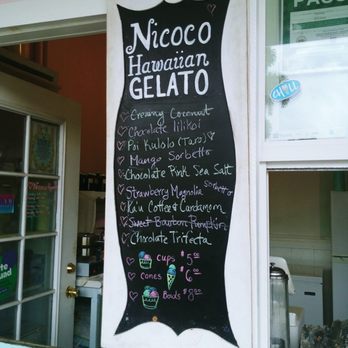 PASS
Nicoco
Hawaiian
GELATO
Creamy Coconut
Chocolate lilikoi
Poi Kulolo (Taro)
Mango Sorbetto
Chocolate Pink Sea Salt
Strawberry Magnolia Sorbetto
Ka'u Coffee & Cardamom
Sweet Bourbon Pumpkin
Chocolate Trifecta
cups $5.00
cones $6.00
Bowls $8.00